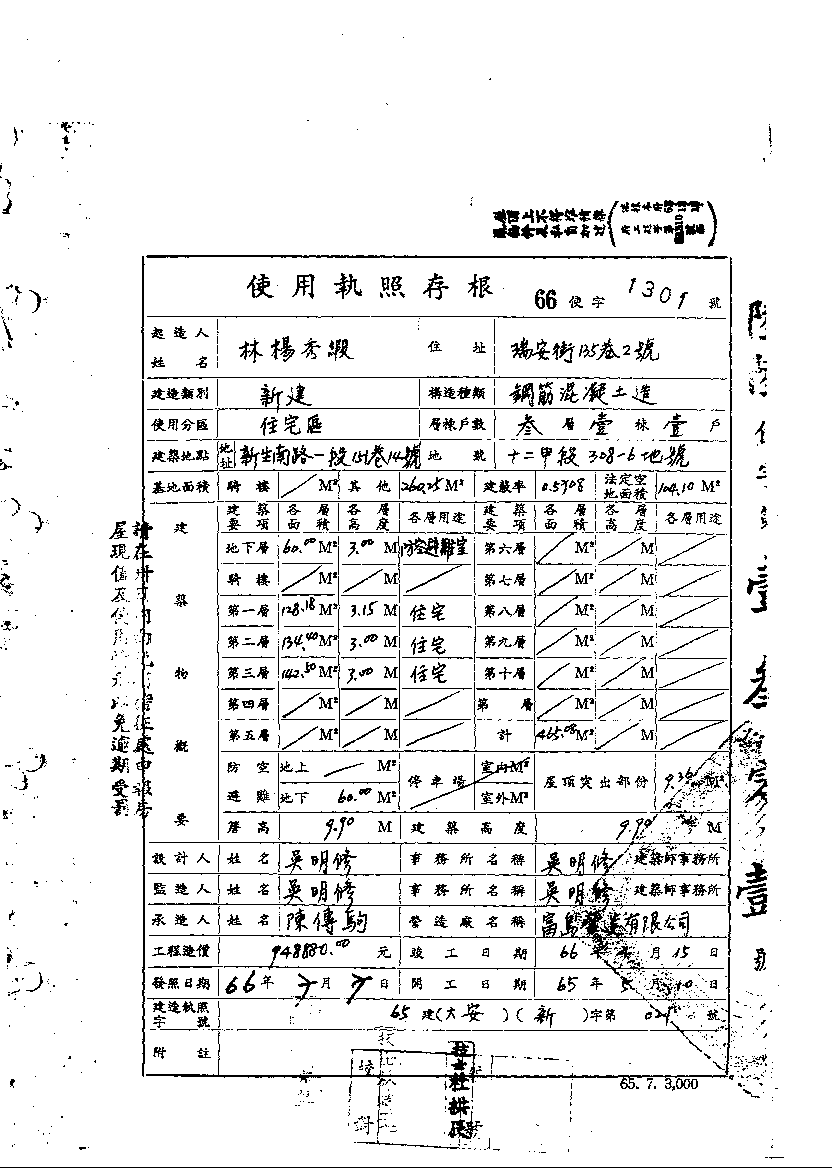 使用執照存根 66 使字 1301 號
起造人姓名 林楊秀緞 住址 瑞安街135巷2號
建造類別 新建 構造種類 鋼筋混凝土造
使用分區 住宅區 層棟戶數 叁層壹棟壹戶
建築地點 地址 新生南路一段151巷14號 地號 十二甲段308-6地號
基地面積 騎樓 M² 其他 260.25M² 建蔽率 0.5308 法定空地面積 104.10 M²
建築物概要
建築要項 各層面積 各層高度 各層用途 建築要項 各層面積 各層高度 各層用途
地下層 60.00 M² 3.00 M 防空避難室 第六層 M² M
騎樓 M² M 第七層 M² M
第一層 128.18 M² 3.15 M 住宅 第八層 M² M
第二層 134.40 M² 3.00 M 住宅 第九層 M² M
第三層 142.50 M² 3.00 M 住宅 第十層 M² M
第四層 M² M 第 層 M² M
第五層 M² M 計 465.08M² M
防空避難 地上 M² 停車場 室內M² 屋頂突出部份 M²
地下 60.00 M² 室外M²
層高 9.90 M 建築高度 9.90 M
設計人 姓名 吳明修 事務所名稱 吳明修 建築師事務所
監造人 姓名 吳明修 事務所名稱 吳明修 建築師事務所
承造人 姓名 陳傳駒 營造廠名稱 富島營造有限公司
工程造價 948880.00 元 竣工日期 66年 月15日
發照日期 66年 月 日 開工日期 65年5月10日
建造執照字號 65 建(大安)(新)字第 號
附註
65. 7. 3,000